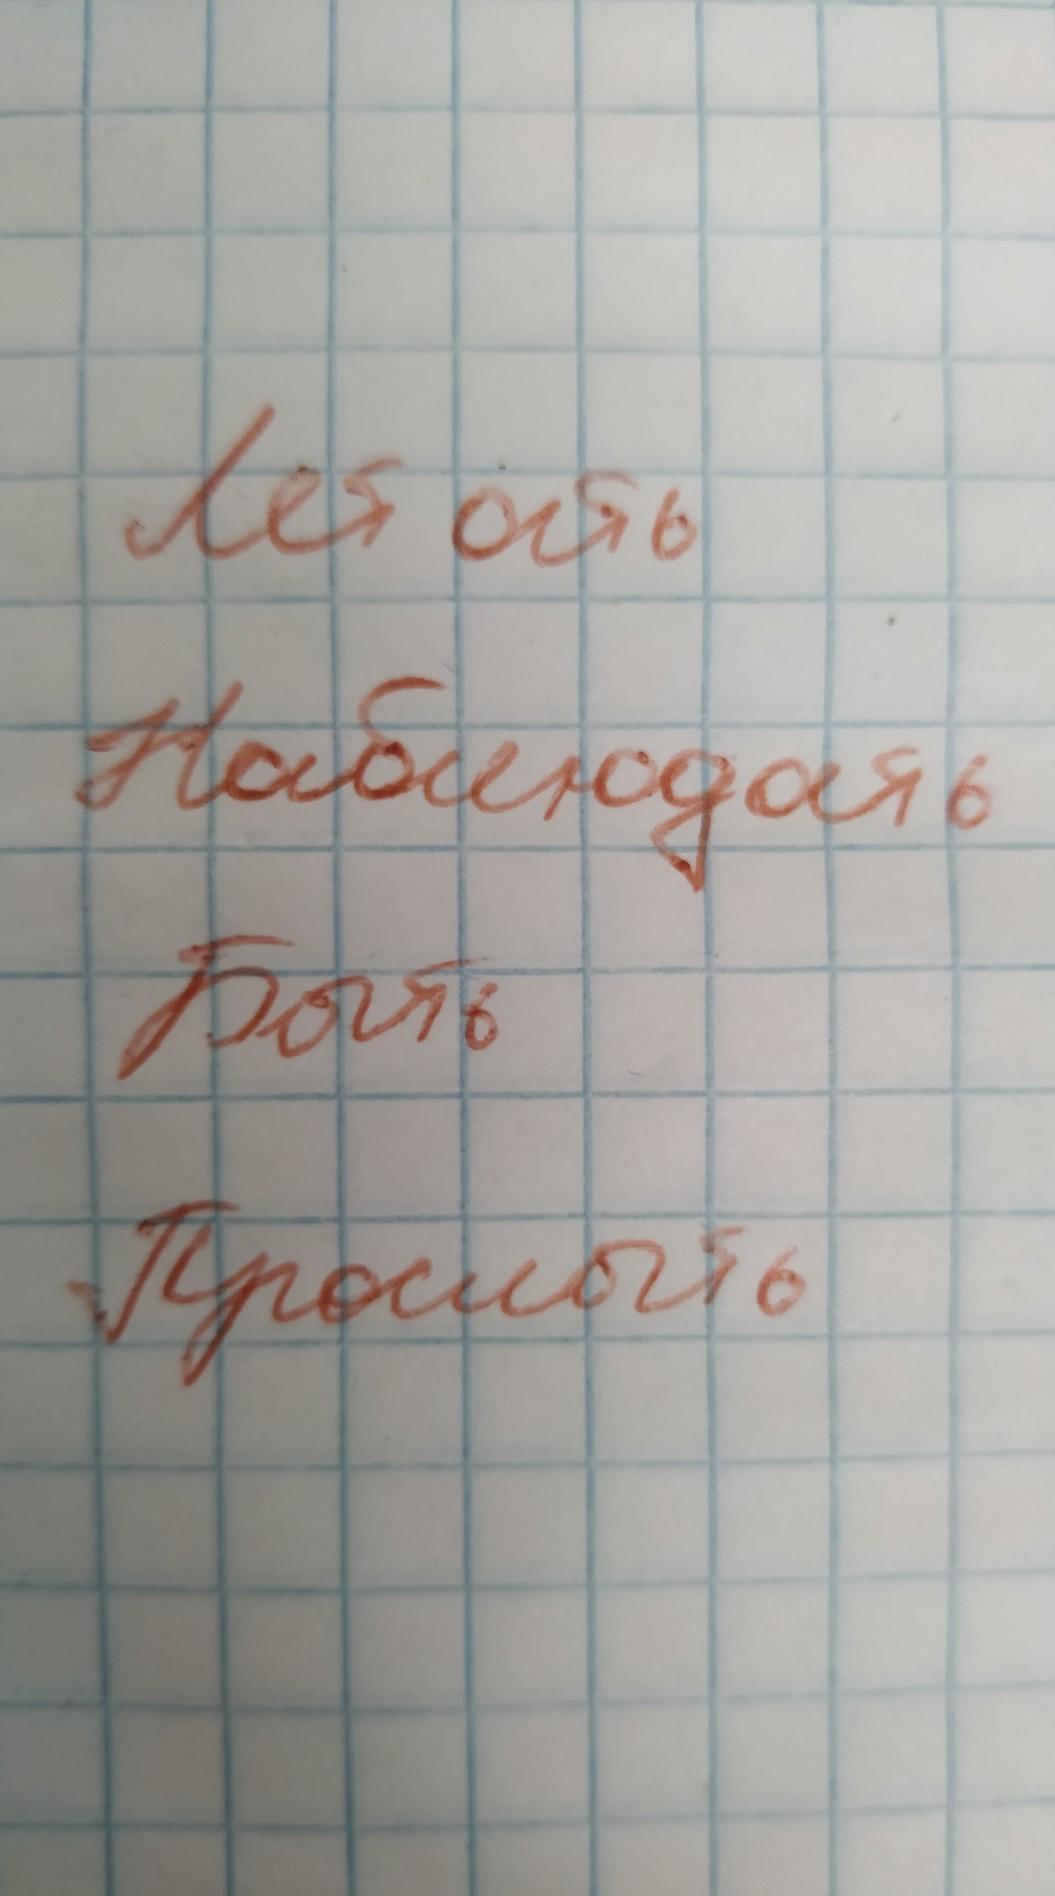 Летать
Наблюдать
Быть
Промыть